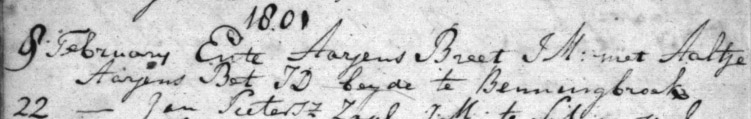 1801
8 February Ente Aarjens Breet J M: met Aaltje
Aarjens Bet J D beyde te Benningbroek
22 — Jan Pietersz Zaal J M: te